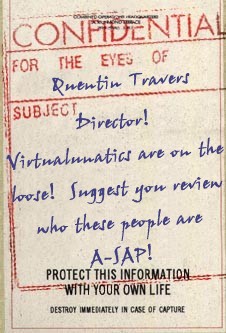 COMBINED OPERATIONS HEADQUARTERS
CONFIDENTIAL
FOR THE EYES OF
Quentin Travers
SUBJECT
Director!
Virtualunatics are on the
loose! Suggest you review
who these people are
A-SAP!
PROTECT THIS INFORMATION
WITH YOUR OWN LIFE
DESTROY IMMEDIATELY IN CASE OF CAPTURE